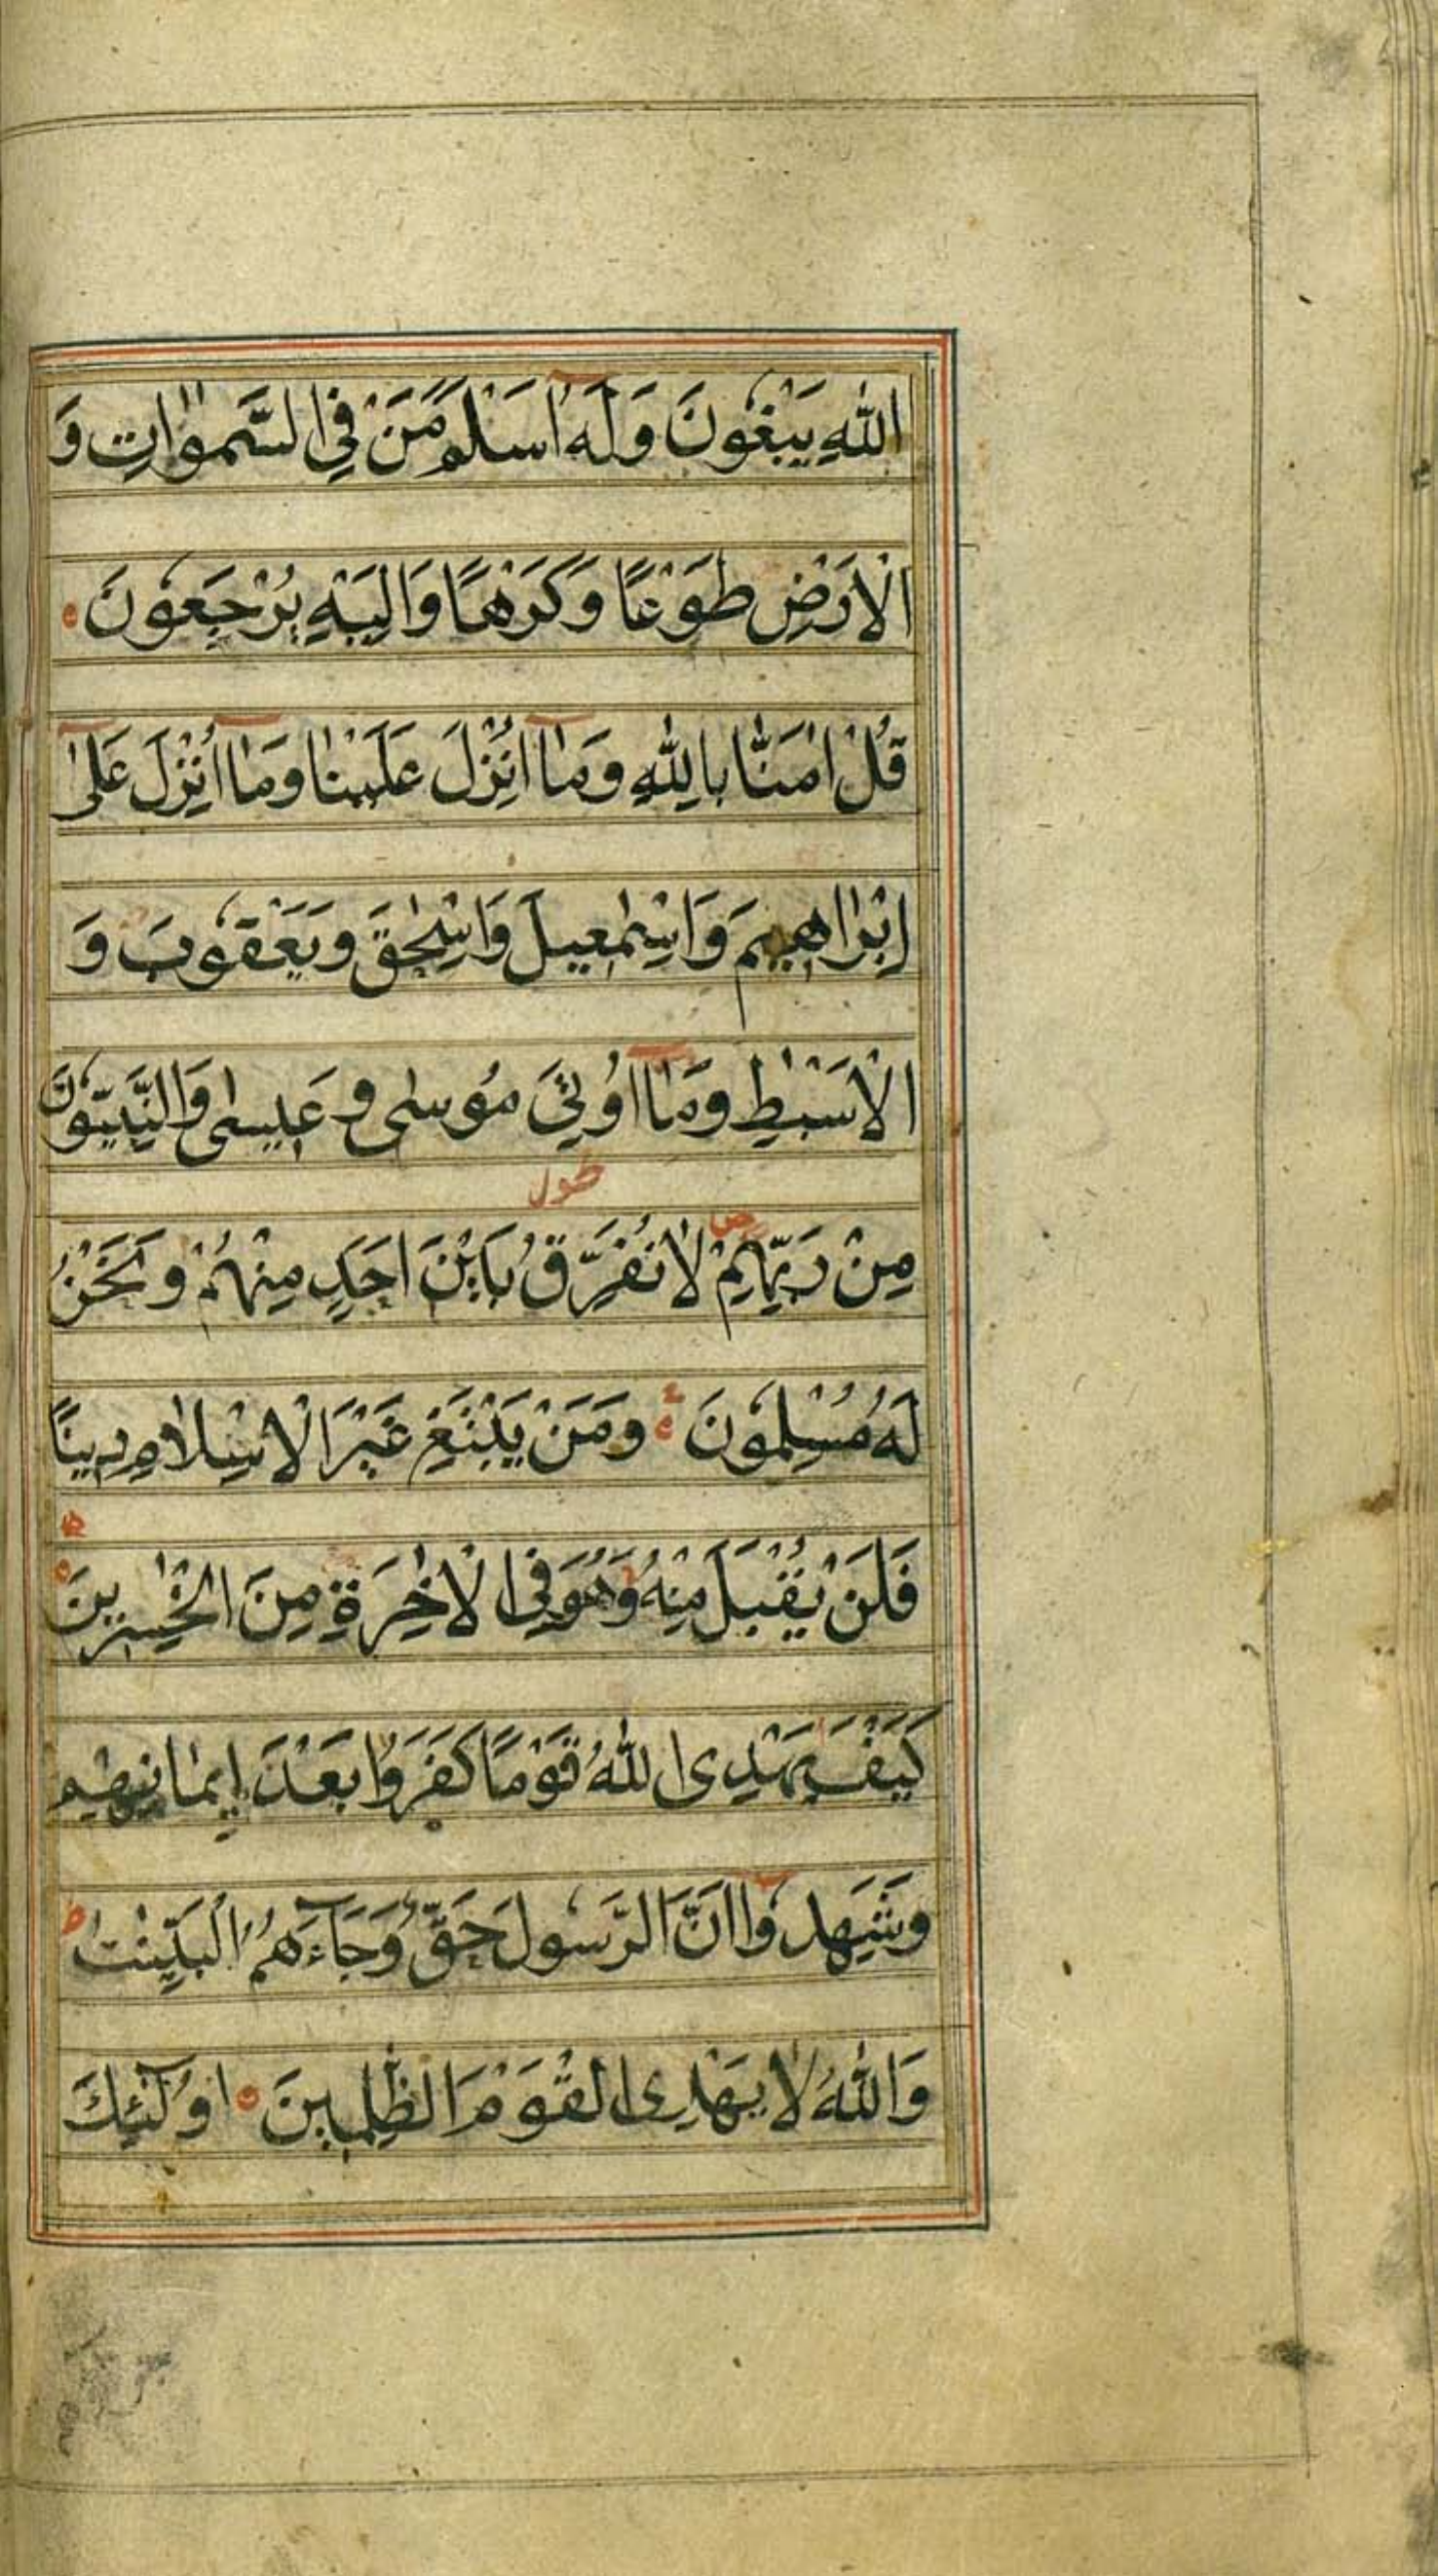 اللّٰهِ يَبْغُونَ وَلَهُ اَسْلَمَ مَنْ فِي السَّمٰوٰاتِ وَ
الْاَرْضِ طَوْعًا وَكَرْهًا وَاِلَيْهِ يُرْجَعُونَ
قُلْ اٰمَنَّا بِاللّٰهِ وَمٰآ اُنْزِلَ عَلَيْنٰا وَمٰآ اُنْزِلَ عَلٰٓى
اِبْرٰاهِيمَ وَاِسْمٰعِيلَ وَاِسْحٰقَ وَيَعْقُوبَ وَ
الْاَسْبٰطِ وَمٰآ اُوتِيَ مُوسٰى وَعِيسٰى وَالنَّبِيُّونَ
مِنْ رَبِّهِمْ لٰا نُفَرِّقُ بَيْنَ اَحَدٍ مِنْهُمْ وَنَحْنُ
لَهُ مُسْلِمُونَ وَمَنْ يَبْتَغِ غَيْرَ الْاِسْلٰامِ دِينًا
فَلَنْ يُقْبَلَ مِنْهُ وَهُوَ فِي الْاٰخِرَةِ مِنَ الْخٰسِرِينَ
كَيْفَ يَهْدِى اللّٰهُ قَوْمًا كَفَرُوا بَعْدَ اِيمٰانِهِمْ
وَشَهِدُوٓا اَنَّ الرَّسُولَ حَقٌّ وَجَآءَهُمُ الْبَيِّنٰتُ
وَاللّٰهُ لٰا يَهْدِى الْقَوْمَ الظّٰلِمِينَ اُولٰٓئِكَ